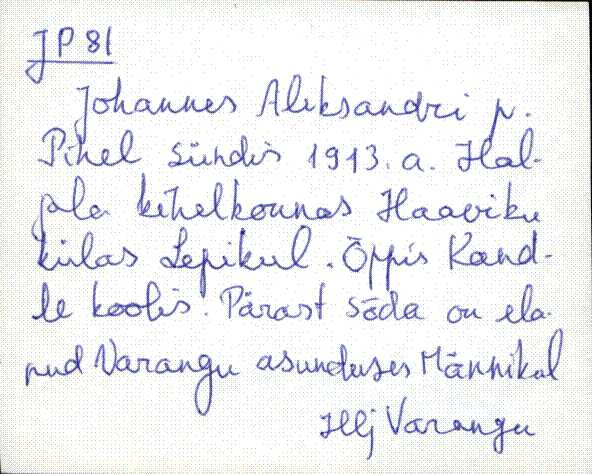 JP 81
Johannes Aleksandri p.
Pihel sündis 1913. a. Hal-
jala kihelkonnas Haaviku
külas Lepikul. Õppis Kand-
le koolis. Pärast sõda on ela-
nud Varangu asunduses Männikul
Hlj Varangu